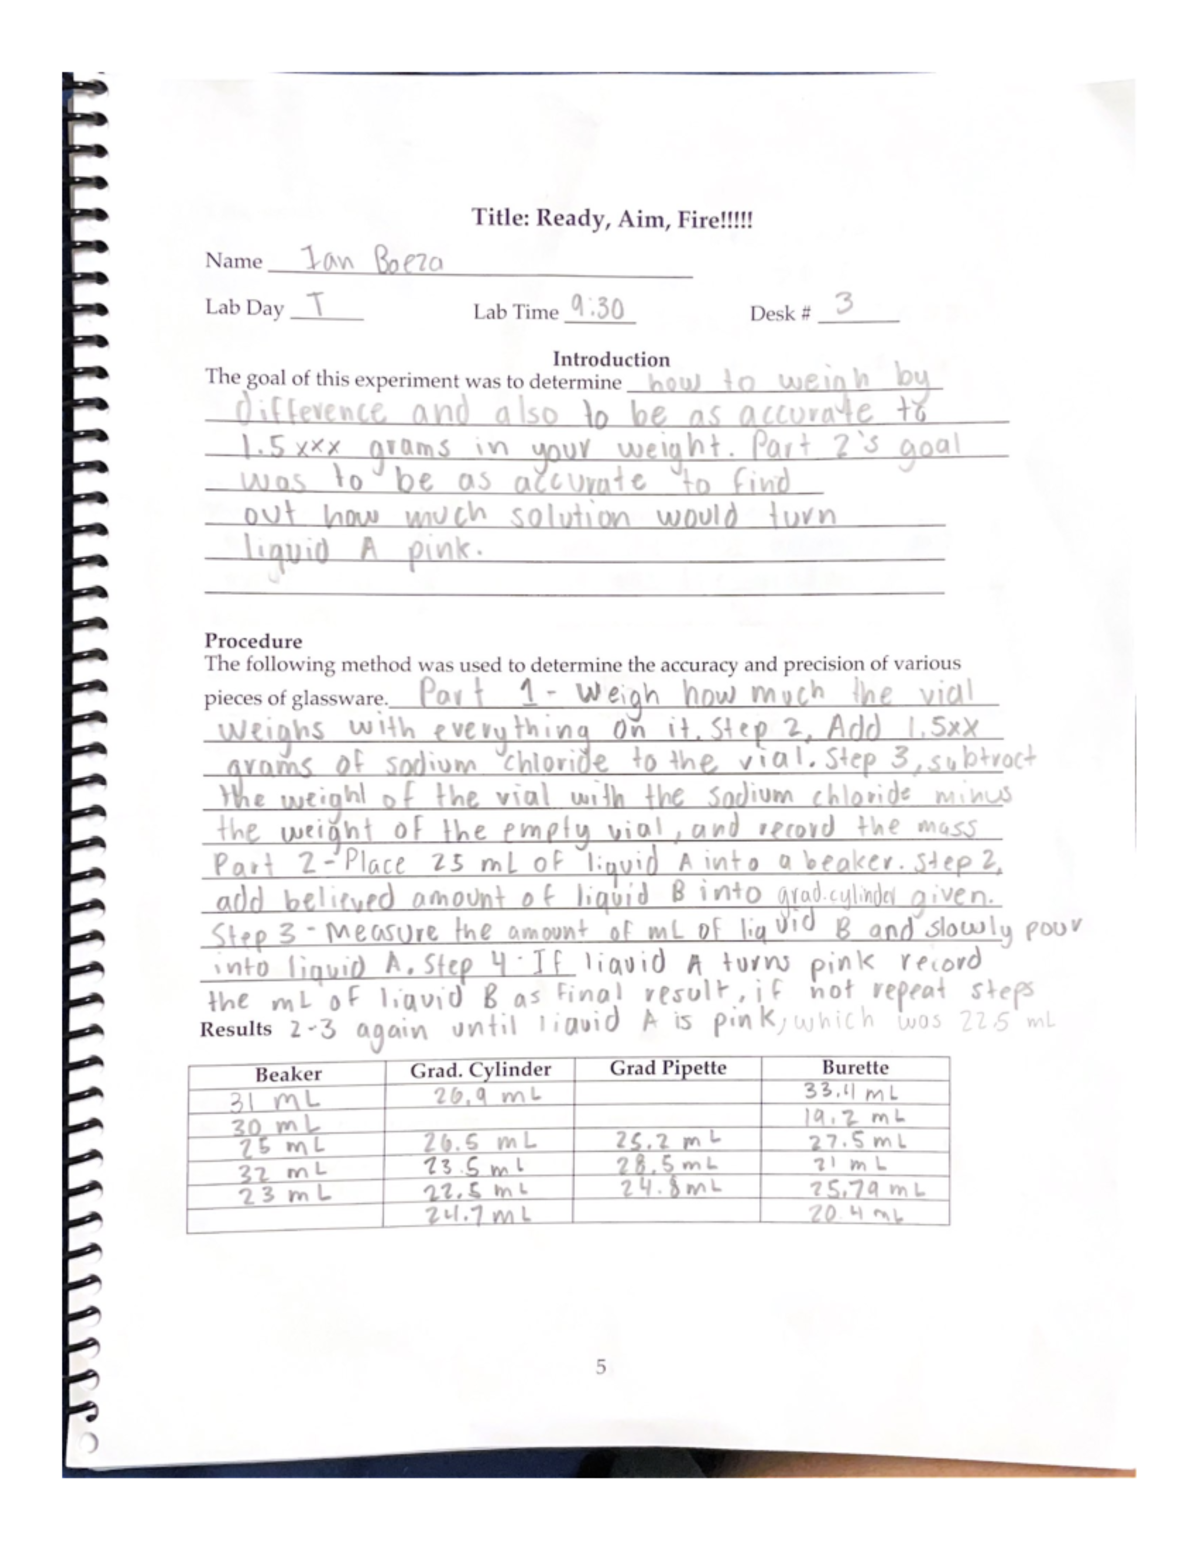 Title: Ready, Aim, Fire!!!!!
Name Ian Baeza
Lab Day T Lab Time 9:30 Desk # 3
Introduction
The goal of this experiment was to determine how to weigh by
difference and also to be as accurate to
1.5xxx grams in your weight. Part 2's goal
was to be as accurate to find
out how much solution would turn
liquid A pink.
Procedure
The following method was used to determine the accuracy and precision of various
pieces of glassware. Part 1 - Weigh how much the vial
weighs with everything on it. Step 2, Add 1.5xx
grams of sodium chloride to the vial. Step 3, subtract
the weight of the vial with the sodium chloride minus
the weight of the empty vial, and record the mass
Part 2 - Place 25 mL of liquid A into a beaker. Step 2,
add believed amount of liquid B into grad.cylinder given.
Step 3 - Measure the amount of mL of liquid B and slowly pour
into liquid A. Step 4 - If liquid A turns pink record
the mL of liquid B as final result, if not repeat steps
Results 2-3 again until liquid A is pink, which was 22.5 mL
Beaker Grad. Cylinder Grad Pipette Burette
31 mL 26.9 mL 33.4 mL
30 mL 19.2 mL
25 mL 26.5 mL 25.2 mL 27.5 mL
32 mL 23.5 mL 28.5 mL 21 mL
23 mL 22.5 mL 24.8 mL 25.79 mL
24.7 mL 20.4 mL
5